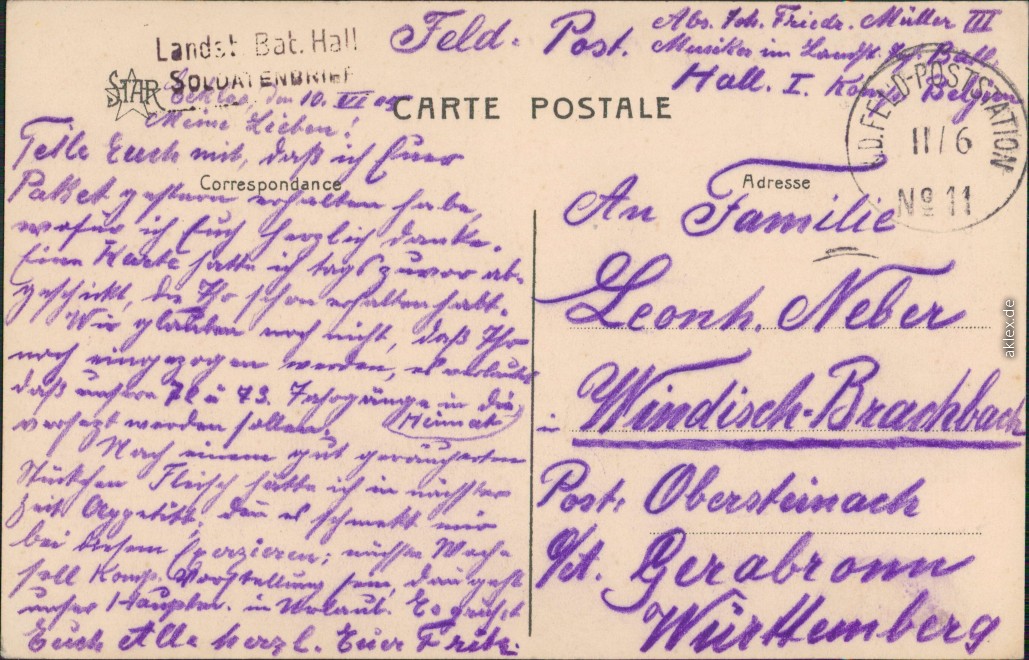 Landst. Bat. Hall
SOLDATENBRIEF
STAR
Feld-Post.
Abs. Joh. Friedr. Müller III
Musiker im Landst. Inf. Batl.
Hall. I. Komp. Belgien
CARTE POSTALE
K.D. FELD-POSTSTATION
11/6
No 11
Eekloo, den 10. VI
Meine Lieben!
Teile Euch mit, daß ich Euer
Correspondance
Packet gestern erhalten habe,
wofür ich Euch herzlich danke.
Eine Karte hatte ich tags zuvor ab-
geschickt, die Ihr schon erhalten habt.
Wir glauben noch nicht, daß Ihr
noch eingezogen werden, es verlautet
daß unsere 72 u 73. Jahrgänge in die
Heimat
versetzt werden sollen.
Nach einem gut geräucherten
Stückchen Fleisch hätte ich in nächster
Zeit Appetitt, den es schmekt mir
bei diesem Exerzieren; nächste Woche
soll Komp. Vorstellung sein, dan geht
unser Hauptm. in Urlaub. Es grüßt
Euch Alle herzl. Euer Fritz.
Adresse
An Familie
Leonh. Neber
in Windisch-Brachbach
Post: Obersteinach
O/A. Gerabronn
Württemberg
aklex.de